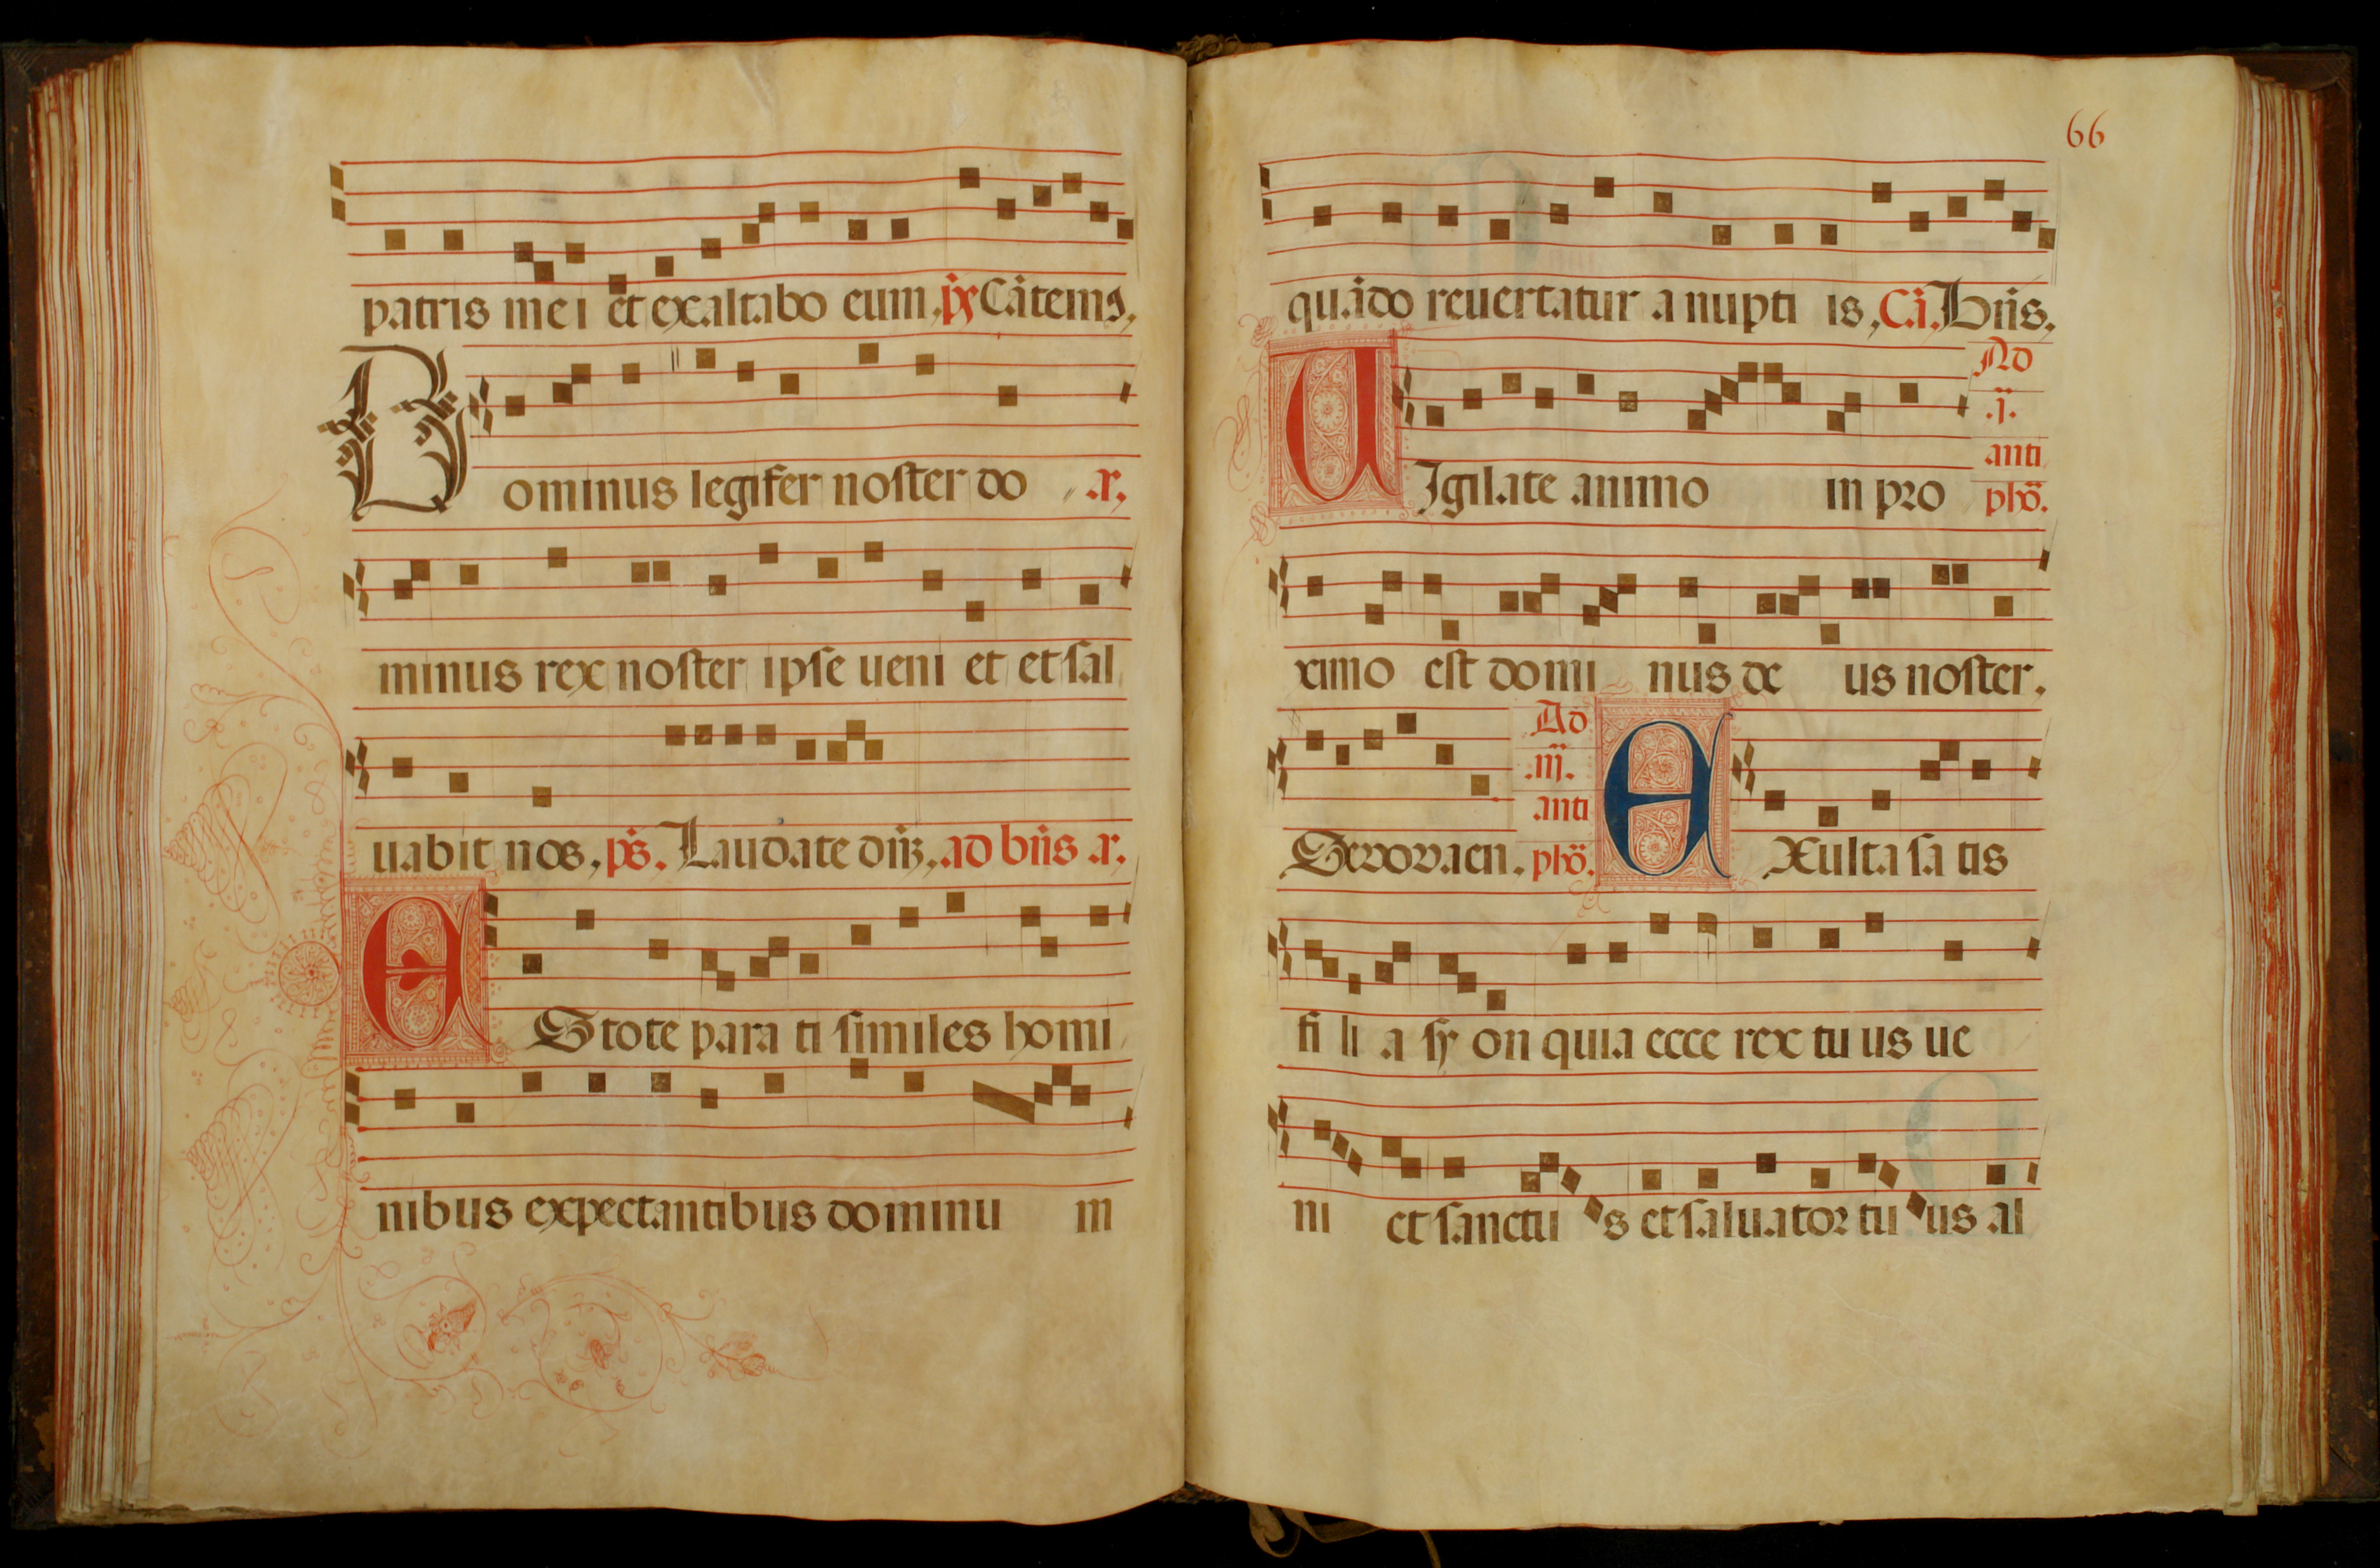 patris mei et exaltabo eum, ps̄ Cātemꝰ,
Dominus legifer noster do a.
minus rex noster ipse ueni et et sal
uabit nos, ps̄. Laudate dn̄ʒ, ad bn̄s a.
EStote para ti similes homi
nibus expectantibus dominu m
66
quādo reuertatur a nupti is, Cā. Bn̄s,
UIgilate animo in pro
Ad
.j.
anti
phō.
ximo est domi nus de us noster.
Seuouaen.
Ad
.iij.
anti
phō.
EXulta sa tis
fi li a sy on quia ecce rex tu us ue
ni et sanctu s et saluator tu us al